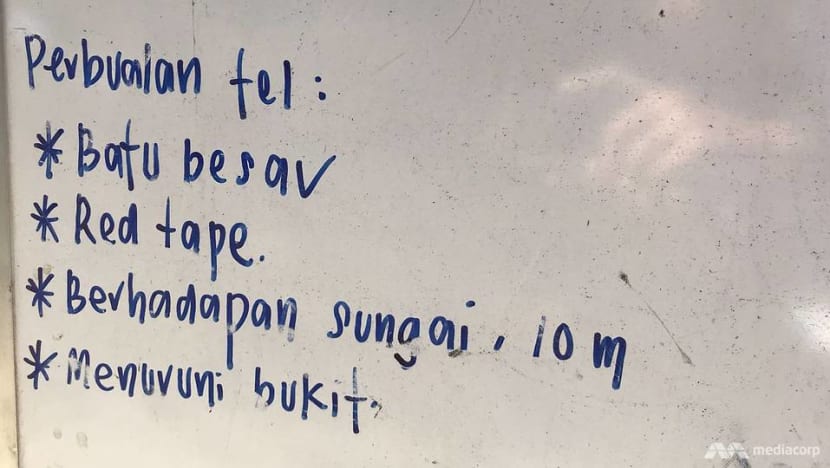 Perbualan tel :
* Batu besar
* Red tape.
* Berhadapan sungai, 10 m
* Menuruni bukit.
mediacorp